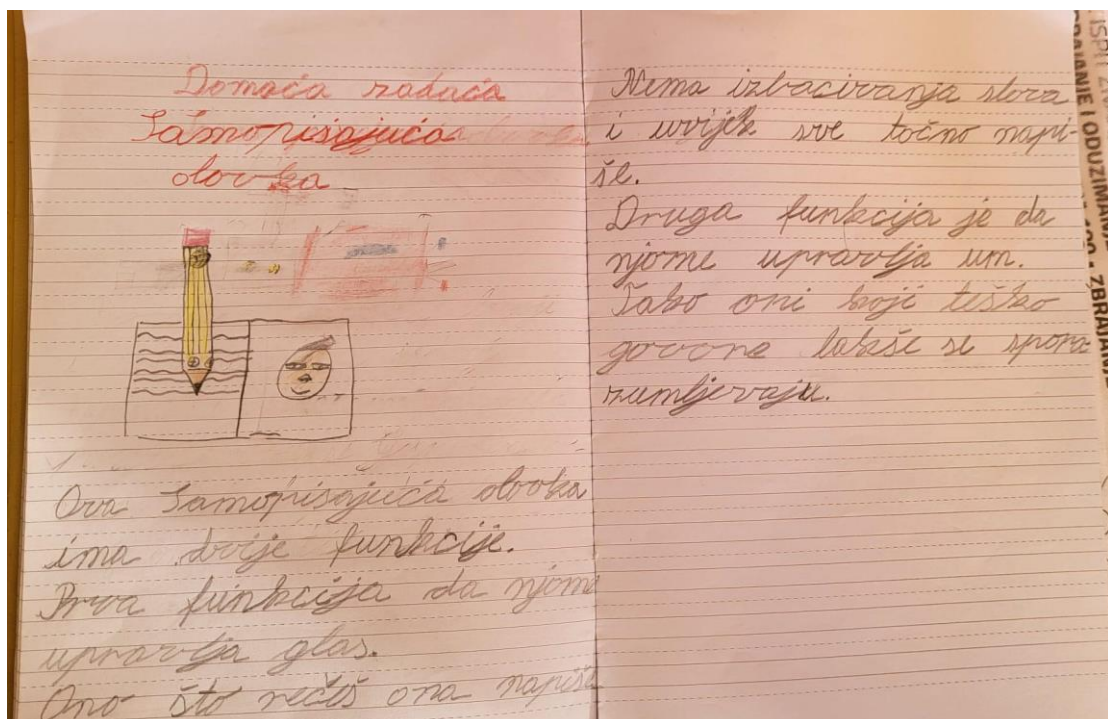 Domaća zadaća
Samopisajuća
olovka
Ova Samopisajuća olovka
ima dvije funkcije.
Prva funkcija da njome
upravlja glas.
Ono što rečeš ona napiše
Nema izbacivanja slova
i uvijek sve točno napi-
še.
Druga funkcija je da
njome upravlja um.
Tako oni koji teško
govore lakše se spora-
zumljevaju.
ISPIT ZN
ZBRAJANJE I ODUZIMANJ
100 - ZBRAJANJE